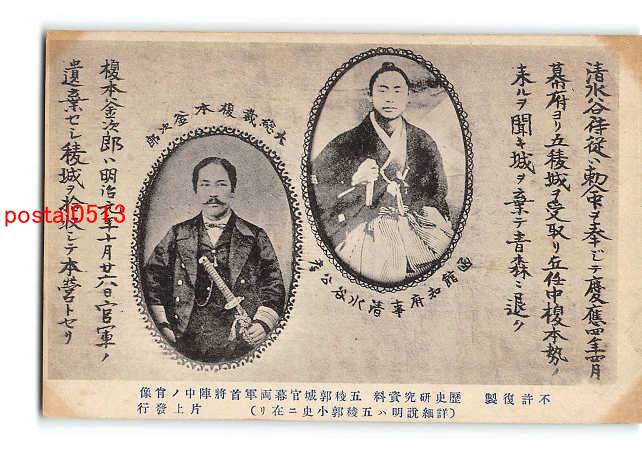 清水谷侍従ハ勅命ヲ奉ジテ慶應四年四月
幕府ヨリ五稜城ヲ受取リ在任中榎本勢ノ
来ルヲ聞キ城ヲ棄テ青森ニ退ク
函館知府事清水谷公考
大総裁榎本釜次郎
榎本釜次郎ハ明治元年十月廿六日官軍ノ
遺棄セシ稜城ヲ占領シテ本営トセリ
postal0513
不許復製
歴史研究資料 五稜郭城官幕両軍首将陣中ノ肖像
(詳細説明ハ五稜郭小史ニ在リ) 片上發行